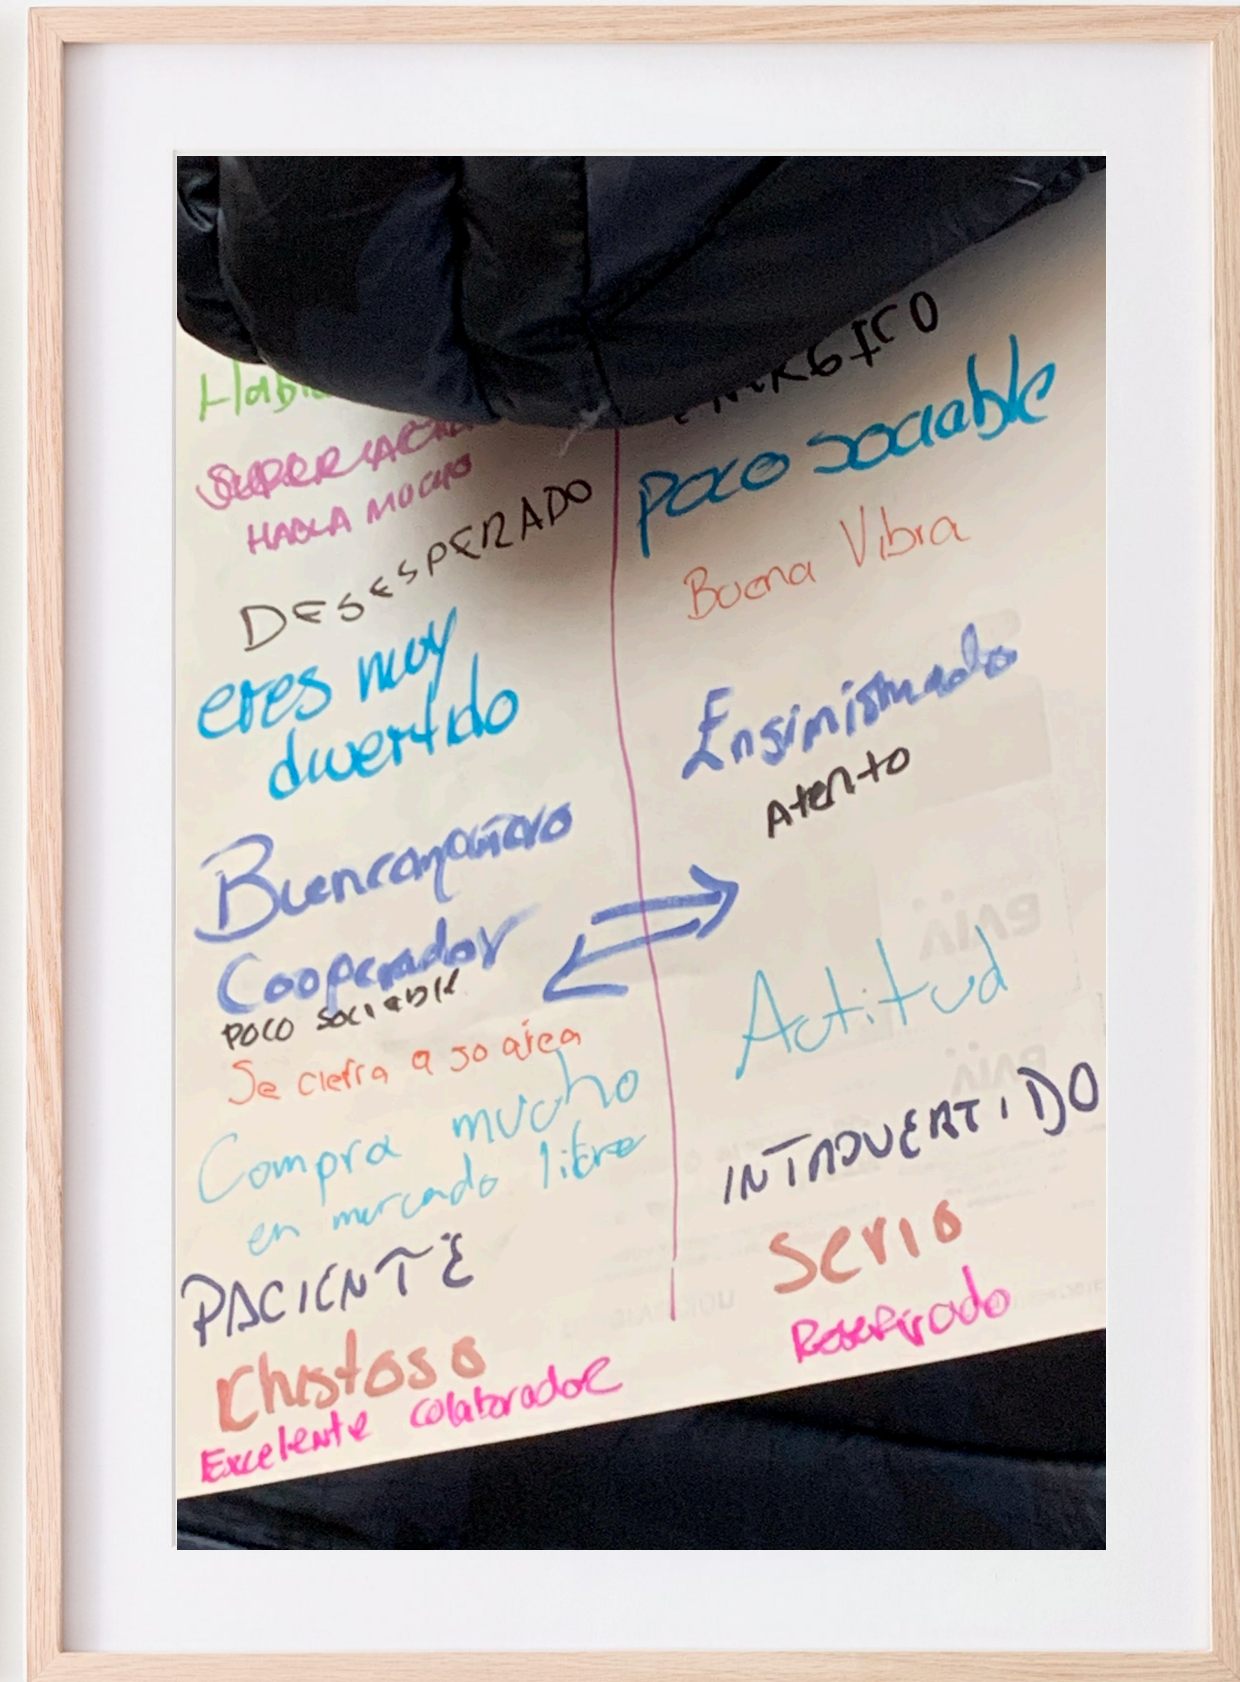 HABLA MUCHO
DESESPERADO
eres muy
divertido
Buencompañero
Cooperador
POCO SOCIABLE
Se cierra a so area
Compra mucho
en mercado libre
PACIENTE
Chistoso
Excelente colaborador
poco sociable
Buena Vibra
Ensimismado
Atento
Actitud
INTROVERTIDO
Serio